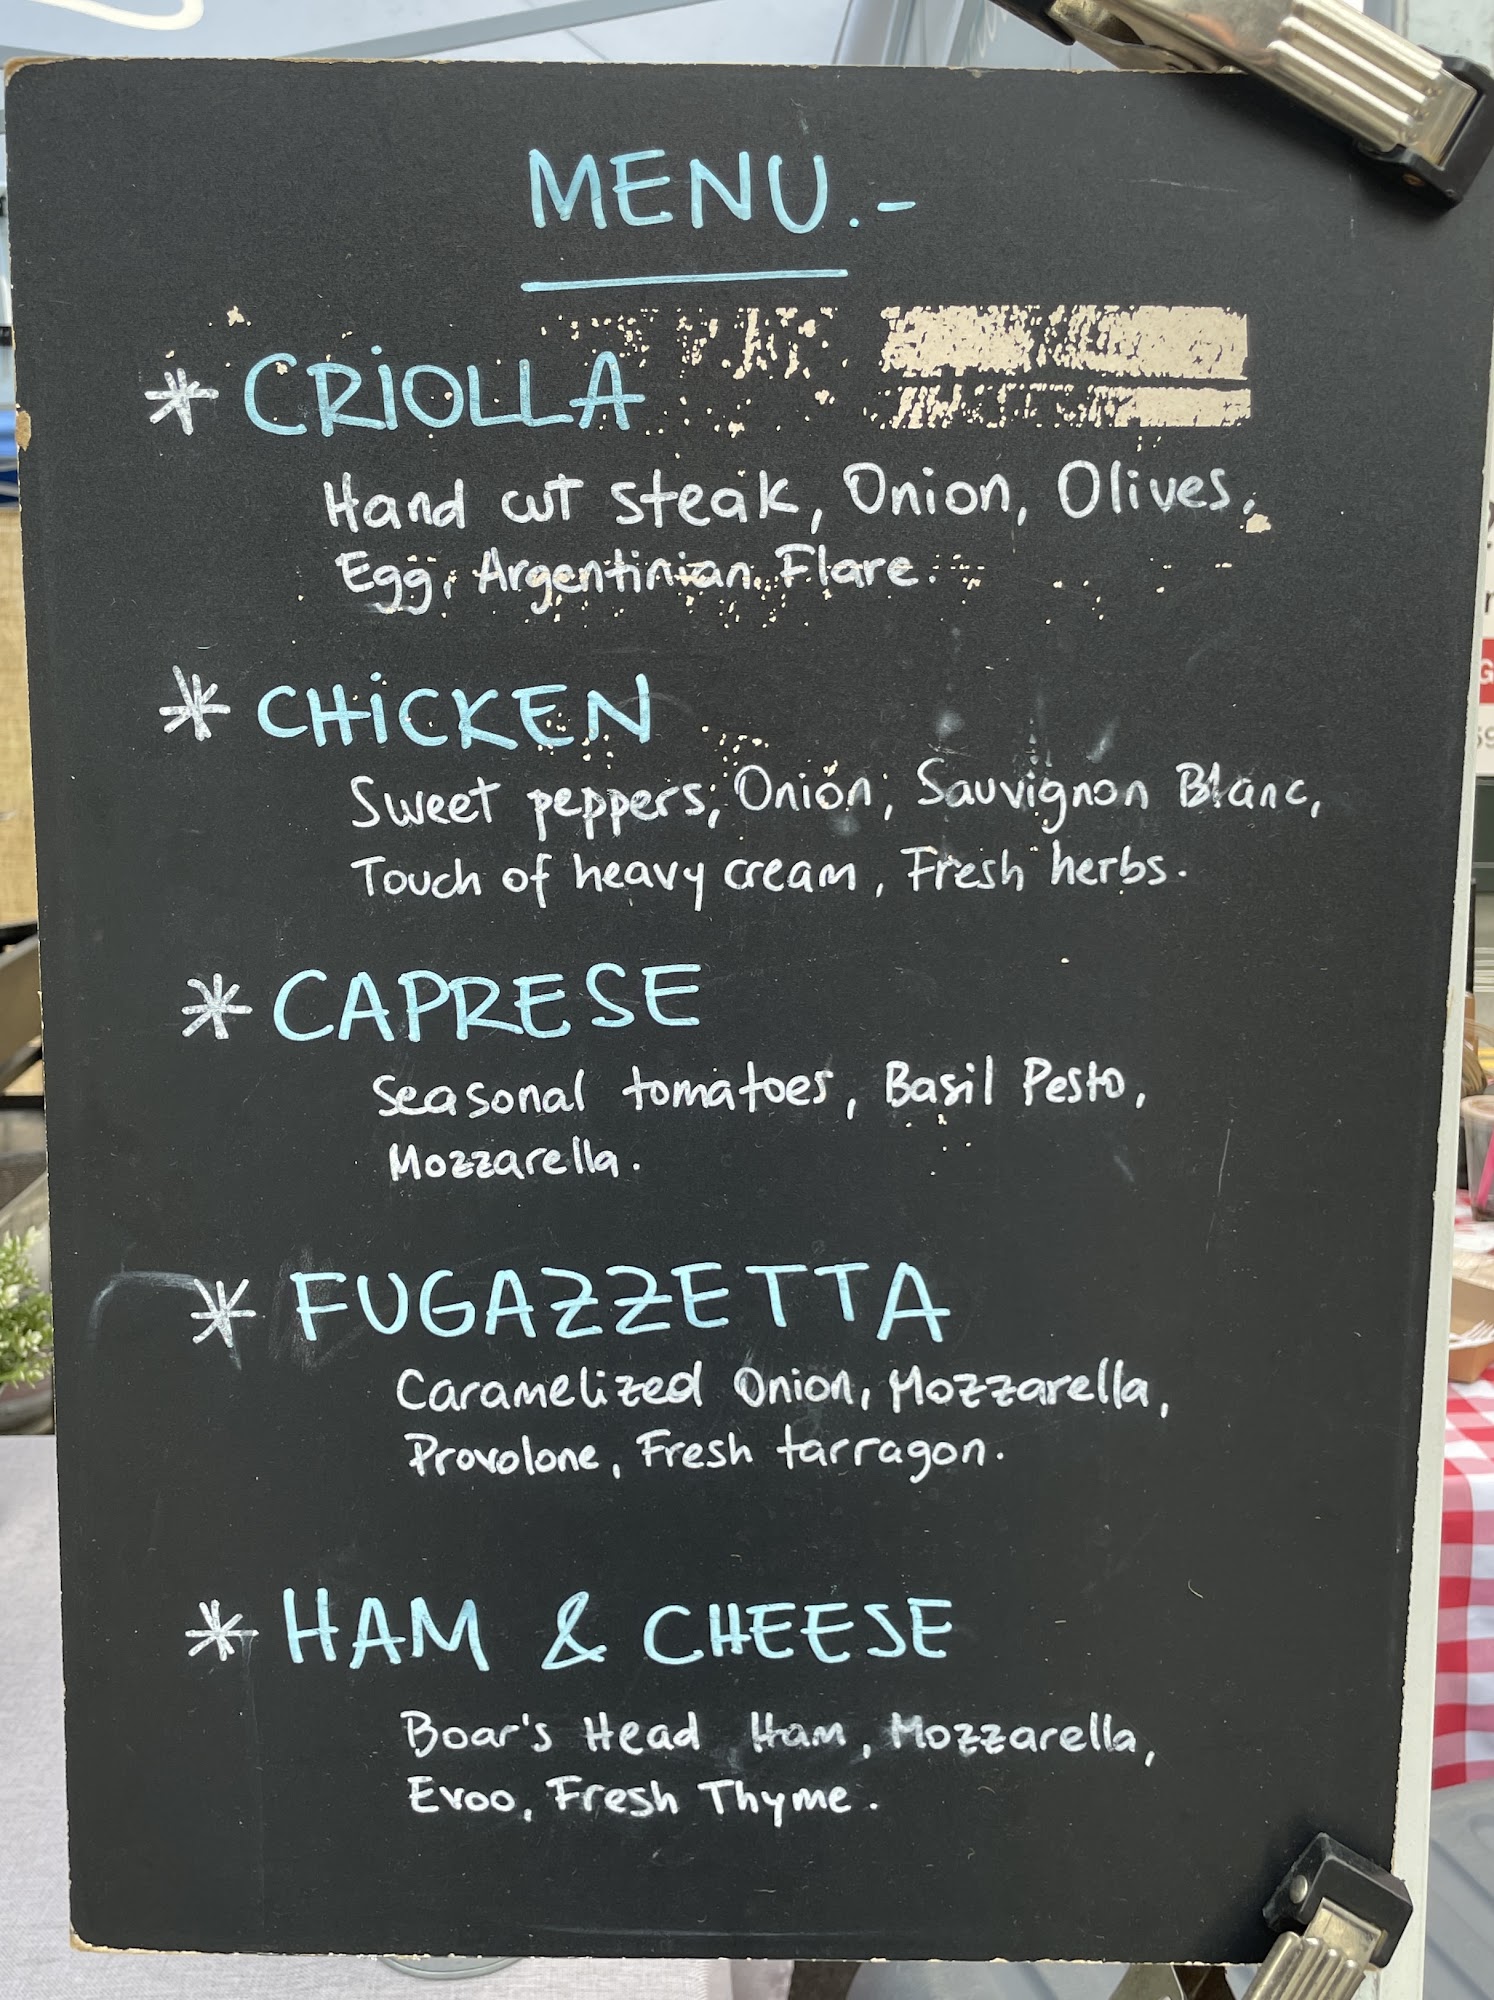 MENU.-
* CRIOLLA
Hand cut steak, Onion, Olives,
Egg, Argentinian Flare.
* CHICKEN
Sweet peppers, Onion, Sauvignon Blanc,
Touch of heavy cream, Fresh herbs.
* CAPRESE
Seasonal tomatoes, Basil Pesto,
Mozzarella.
* FUGAZZETTA
Caramelized Onion, Mozzarella,
Provolone, Fresh tarragon.
* HAM & CHEESE
Boar's Head Ham, Mozzarella,
Evoo, Fresh Thyme.